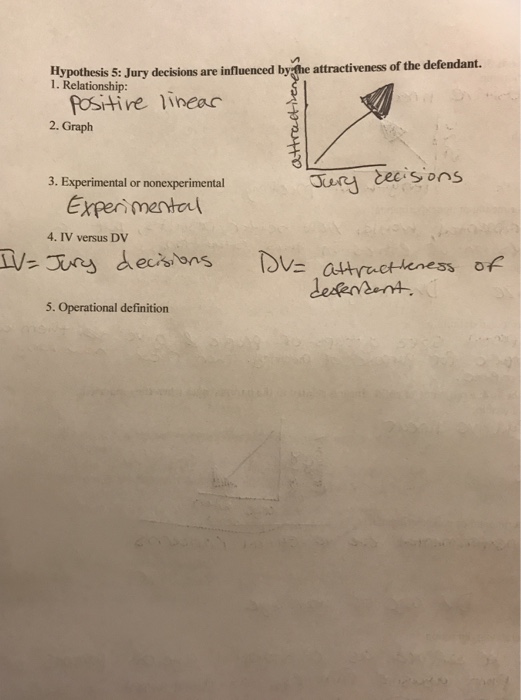 Hypothesis 5: Jury decisions are influenced by the attractiveness of the defendant.
1. Relationship:
Positive linear
2. Graph
attractiveness
Jury decisions
3. Experimental or nonexperimental
Experimental
4. IV versus DV
IV= Jury decisions DV= attractiveness of
defendant.
5. Operational definition